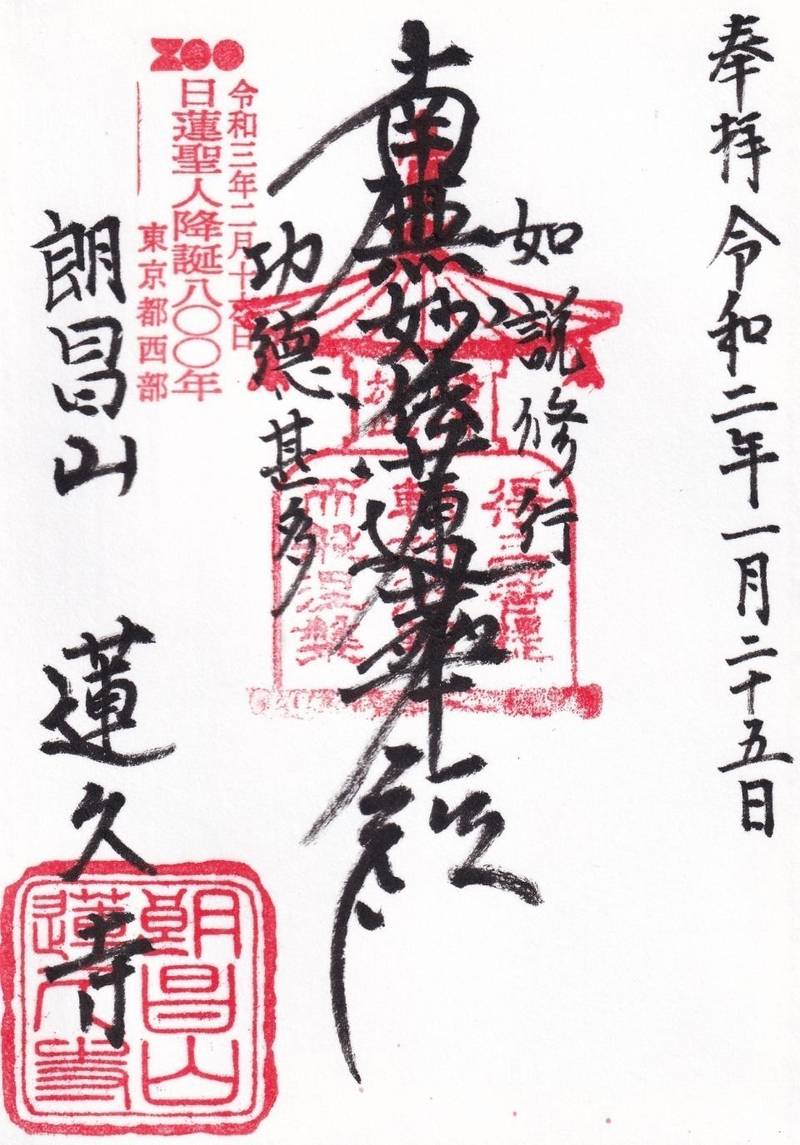 奉拝 令和二年一月二十五日
如説修行
南無妙法蓮華経
功徳甚多
令和三年二月十六日
日蓮聖人降誕八〇〇年
東京都西部
朗昌山 蓮久寺
朗昌山
蓮久寺